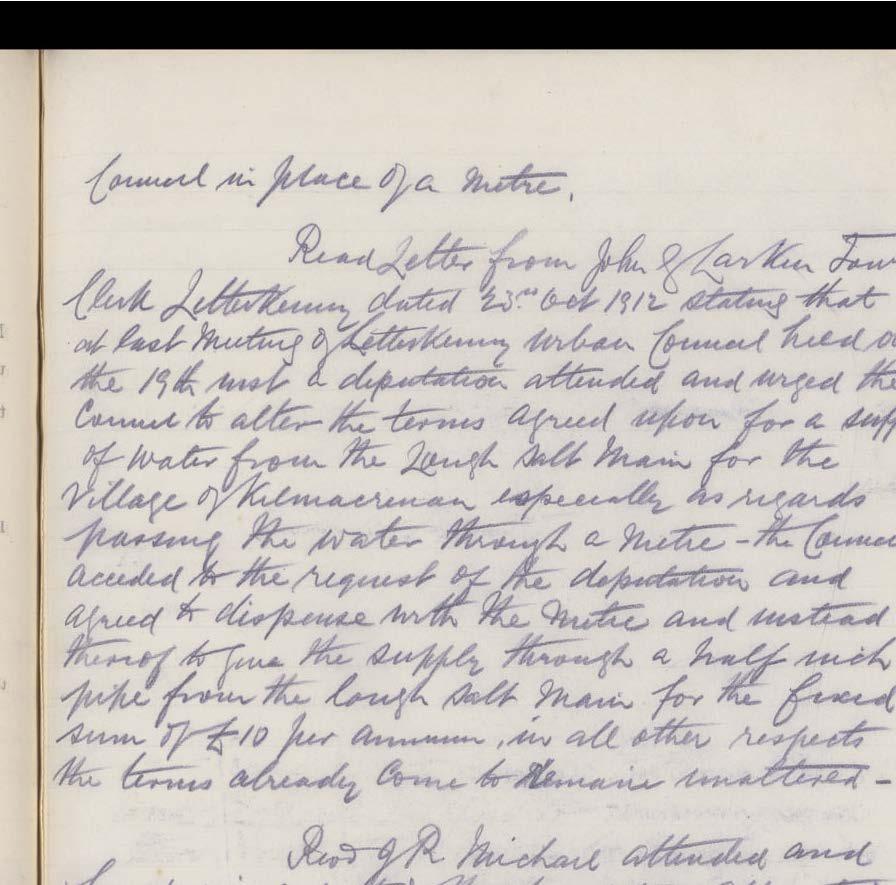 Council in place of a Metre.
Read Letter from John G Larkin Tow
Clerk Letterkenny dated 23rd Oct 1912 stating that
at last Meeting of Letterkenny Urban Council held o
the 19th inst a deputation attended and urged the
Council to alter the terms agreed upon for a supp
of water from the Lough Salt Main for the
Village of Kilmacrenan especially as regards
passing the water through a Metre - the Counci
acceded to the request of the deputation and
agreed to dispense with the Metre and instead
thereof to give the supply through a half inch
pipe from the lough Salt Main for the fixed
sum of £10 per annum, in all other respects
the terms already come to Remain unaltered -
Revd J R Michael attended and